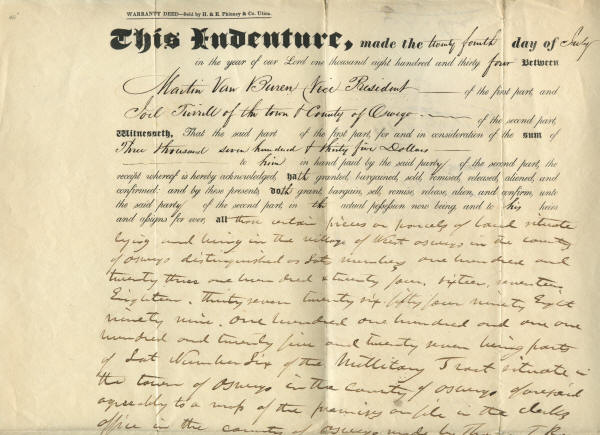 WARRANTY DEED—Sold by H. & E. Phinney & Co. Utica.
This Indenture, made the twenty fourth day of July
in the year of our Lord one thousand eight hundred and thirty four Between
Martin Van Buren (Vice President of the first part, and
Joel Turrill of the town & County of Oswego of the second part,
Witnesseth, That the said part of the first part, for and in consideration of the sum of
Three thousand seven hundred & thirty five Dollars
to him in hand paid by the said party of the second part, the
receipt whereof is hereby acknowledged, hath granted, bargained, sold, remised, released, aliened, and
confirmed: and by these presents, doth grant, bargain, sell, remise, release, alien, and confirm, unto
the said party of the second part, in the actual possession now being, and to his heirs
and assigns for ever, all those certain pieces or parcels of land situate
lying and being in the village of West Oswego in the county
of Oswego distinguished as Lots number one hundred and
twenty three one hundred & twenty four, sixteen, seventeen
Eighteen, thirty seven twenty six fifty four ninety Eight
ninety nine, one hundred one hundred and one one
hundred and twenty five and twenty seven being parts
of Lot Number Six of the Millitary Tract situate in
the town of Oswego in the county of Oswego aforesaid
agreeably to a map of the premises on file in the clerks
office in the county of Oswego made by